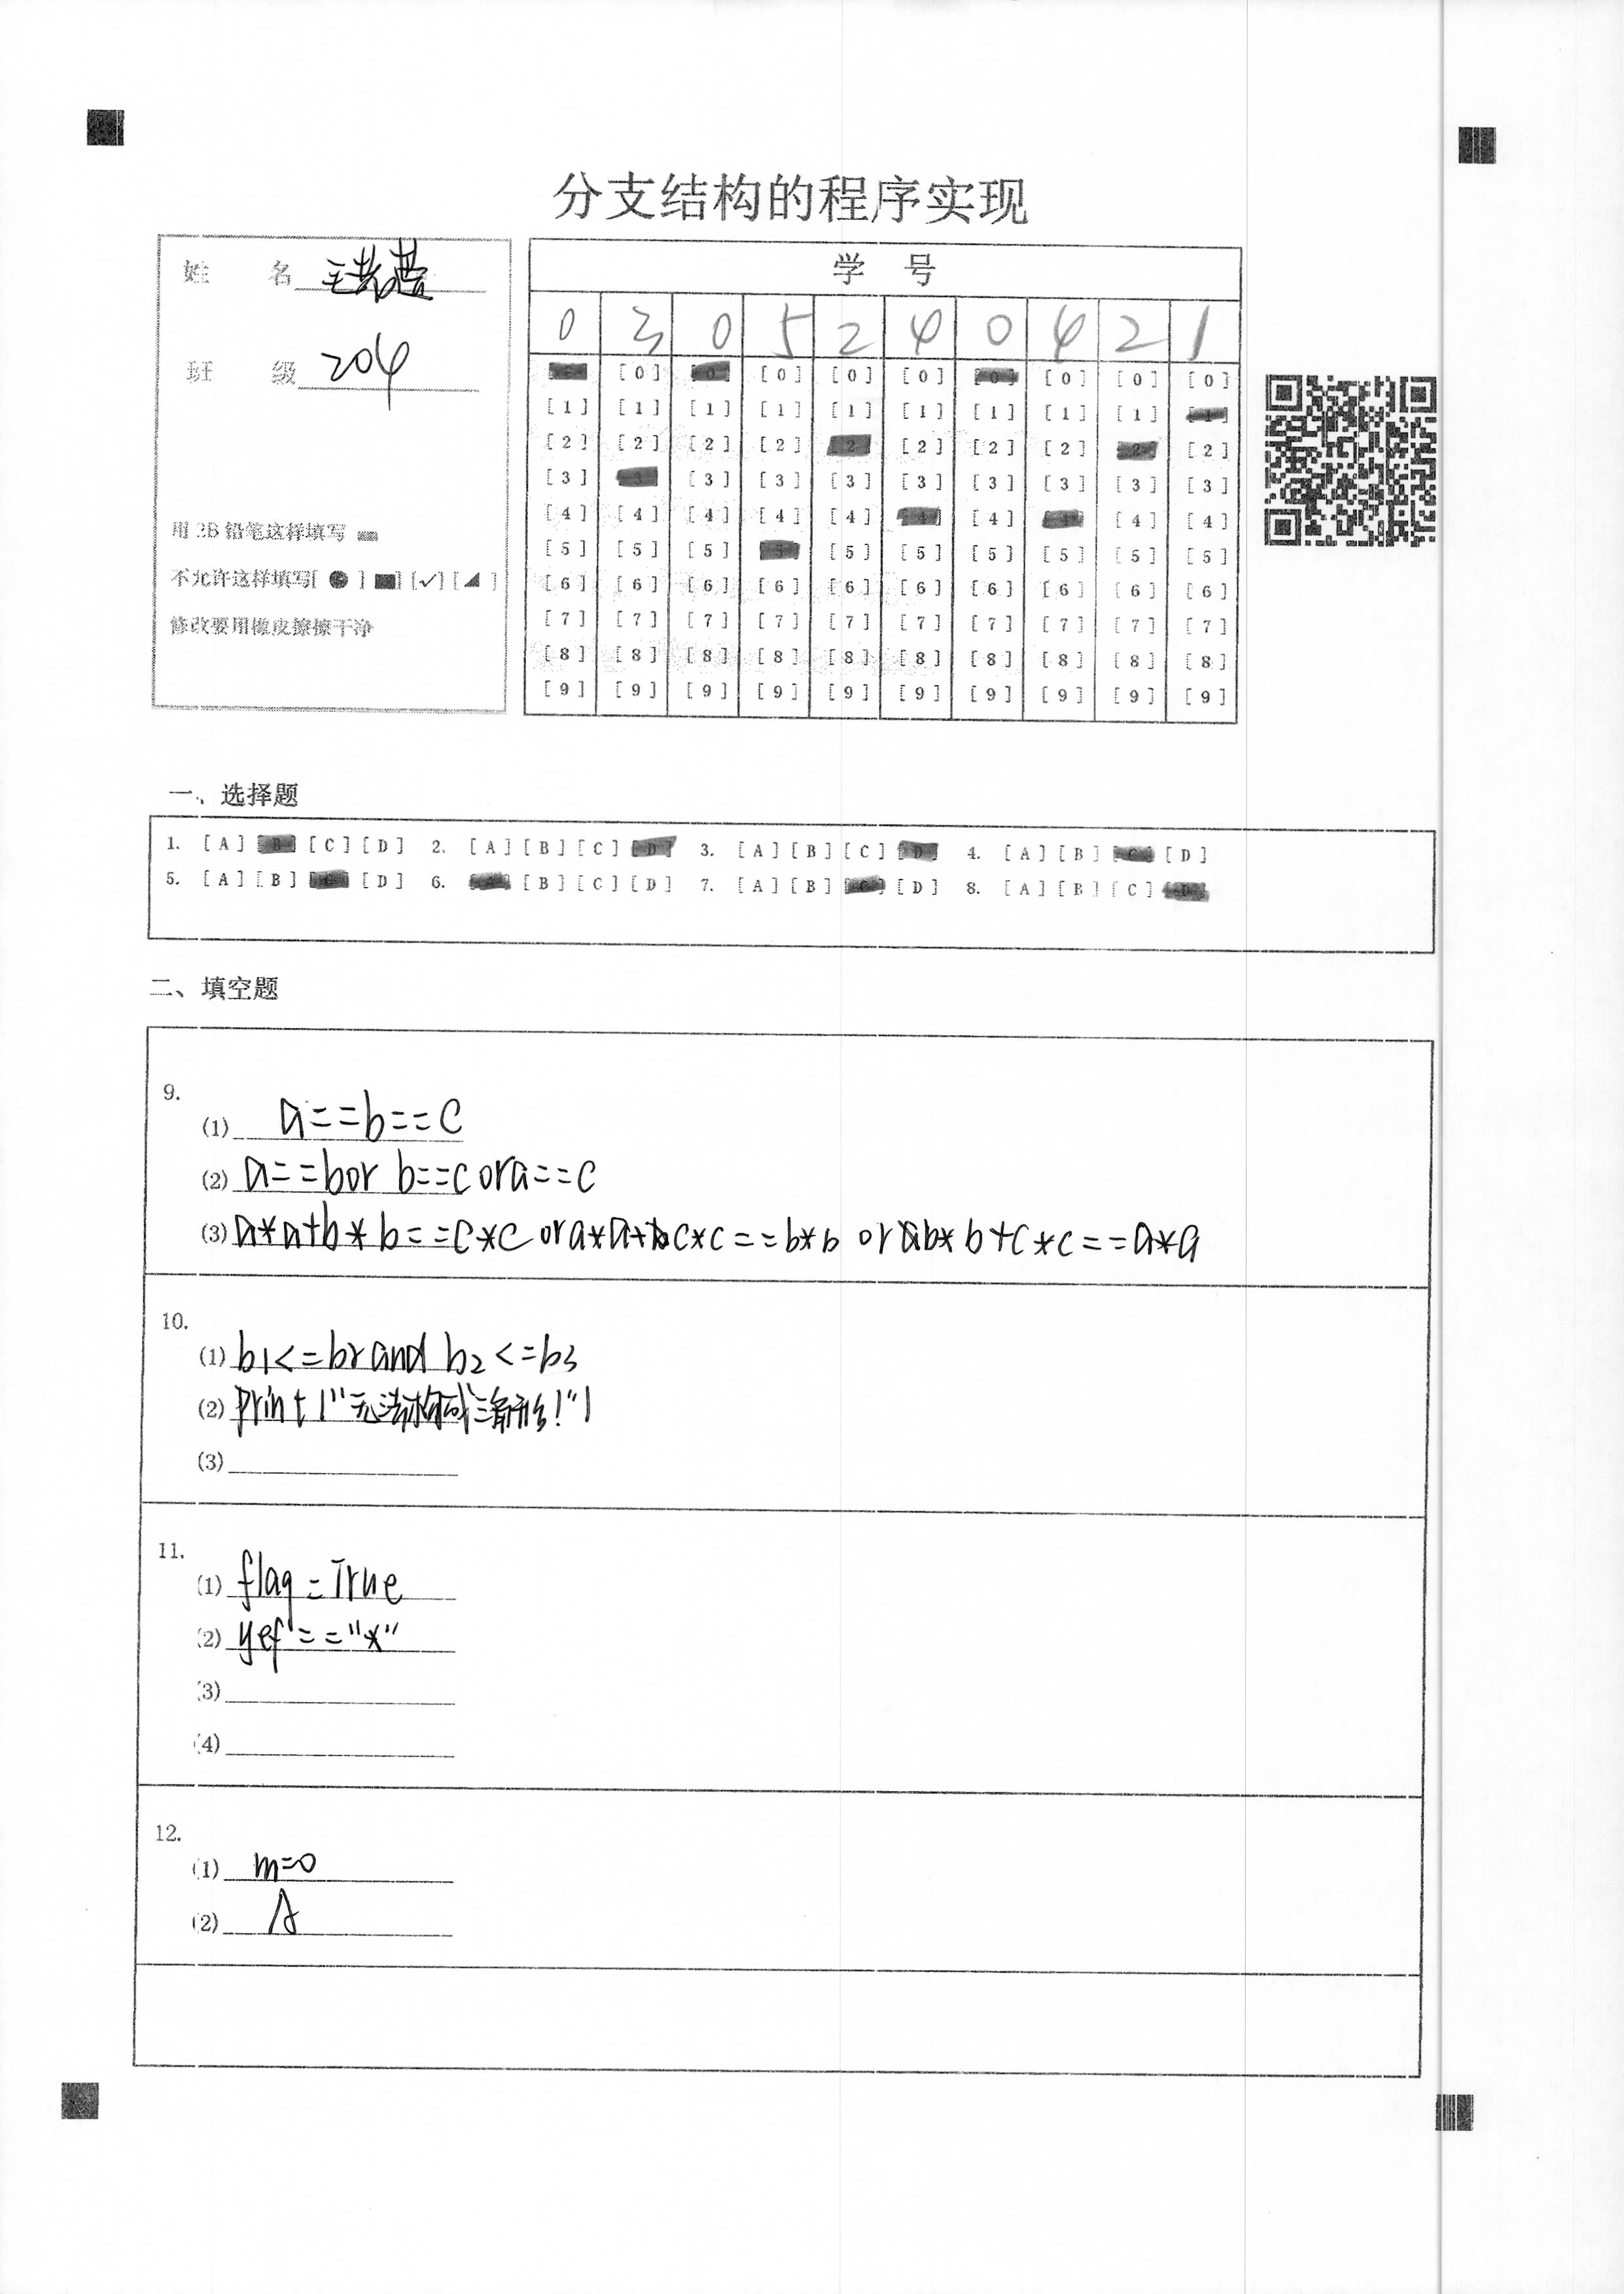 分支结构的程序实现
姓 名
班 级 204
用 2B 铅笔这样填写
不允许这样填写[ ● ] ■] [✓] [◢ ]
修改要用橡皮擦擦干净
学 号
0 3 0 5 2 4 0 4 2 1
[0] [0] [0] [0] [0] [0] [0] [0] [0]
[1] [1] [1] [1] [1] [1] [1] [1] [1] [1]
[2] [2] [2] [2] [2] [2] [2] [2] [2] [2]
[3] [3] [3] [3] [3] [3] [3] [3] [3]
[4] [4] [4] [4] [4] [4] [4] [4] [4] [4]
[5] [5] [5] [5] [5] [5] [5] [5] [5] [5]
[6] [6] [6] [6] [6] [6] [6] [6] [6] [6]
[7] [7] [7] [7] [7] [7] [7] [7] [7] [7]
[8] [8] [8] [8] [8] [8] [8] [8] [8] [8]
[9] [9] [9] [9] [9] [9] [9] [9] [9] [9]
一、选择题
1. [A] [B] [C] [D] 2. [A] [B] [C] [D] 3. [A] [B] [C] [D] 4. [A] [B] [C] [D]
5. [A] [B] [C] [D] 6. [A] [B] [C] [D] 7. [A] [B] [C] [D] 8. [A] [B] [C] [D]
二、填空题
9.
(1) a==b==c
(2) a==bor b==c ora==c
(3) a*a+b*b==c*c or a*a+c*c==b*b or b*b+c*c==a*a
10.
(1) b1<=b2 and b2<=b3
(2) print("无法构成三角形!")
(3)
11.
(1) flag=True
(2) yef=="*"
(3)
(4)
12.
(1) m=0
(2) A